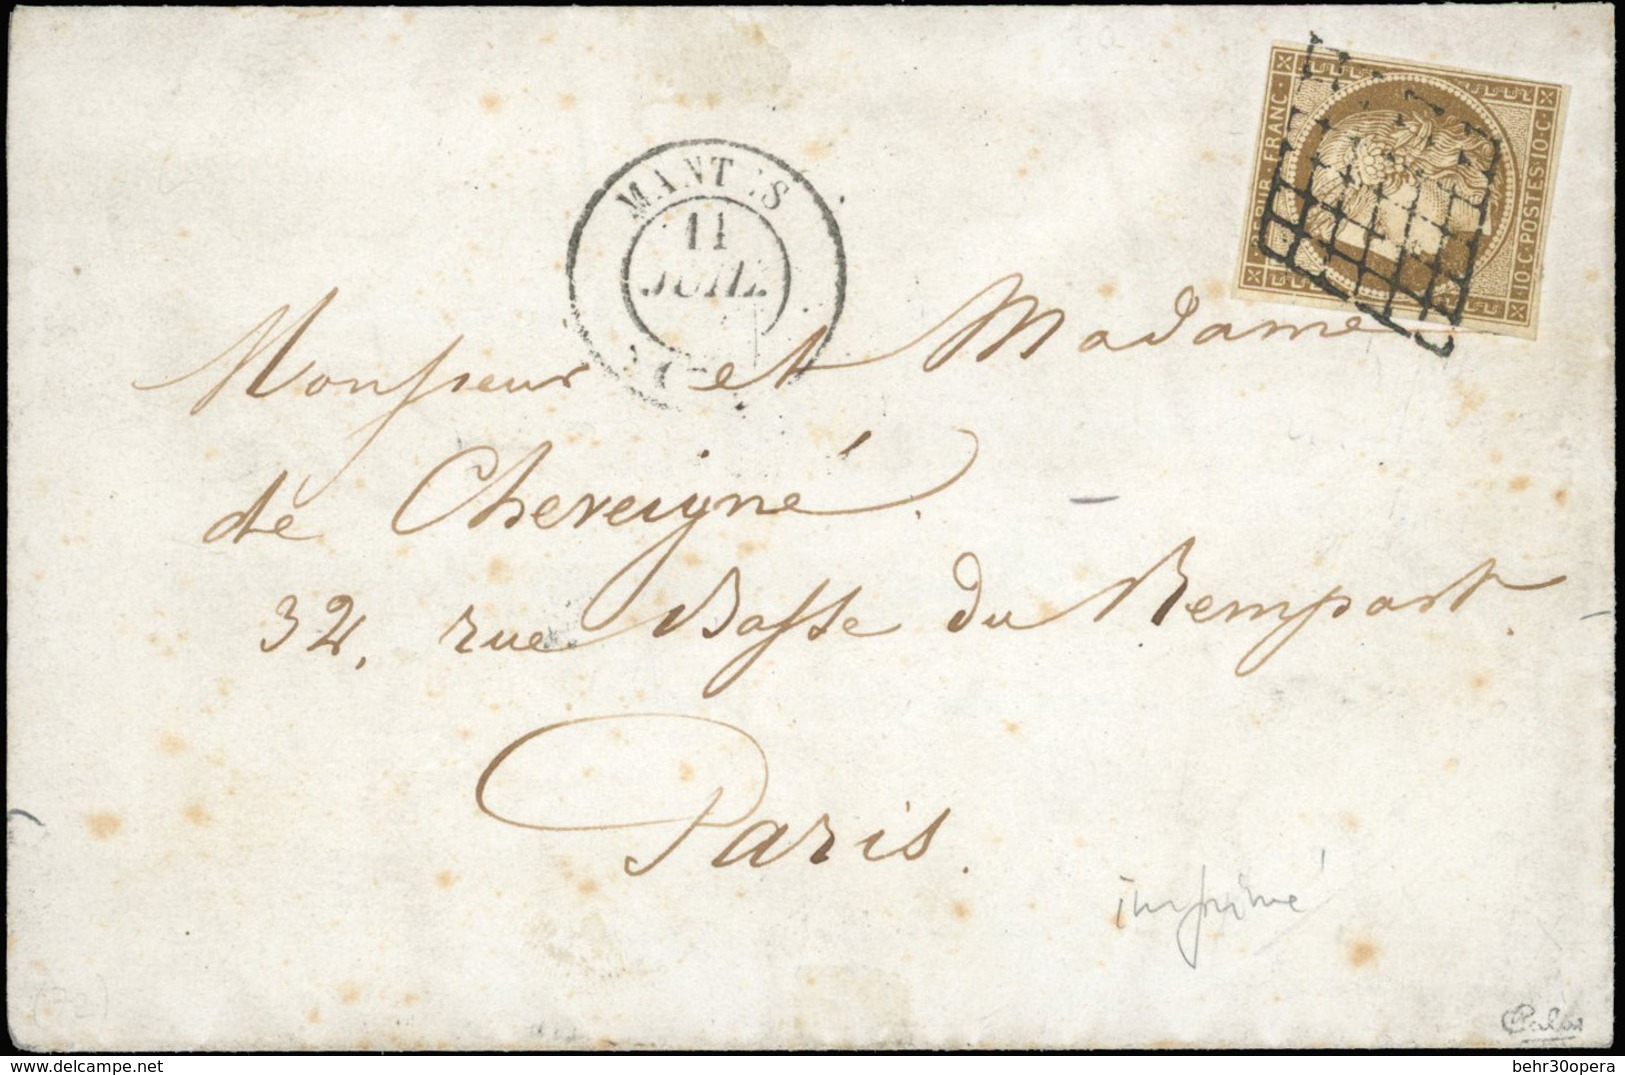 REPUB. FRANC.
10 C. POSTES 10 C.
MANTES
11
JUIL.
Monsieur et Madame
de Cheveigné.
32, rue Basse du Rempart.
Paris.
imprimé
(72)
Calves
behr30opera